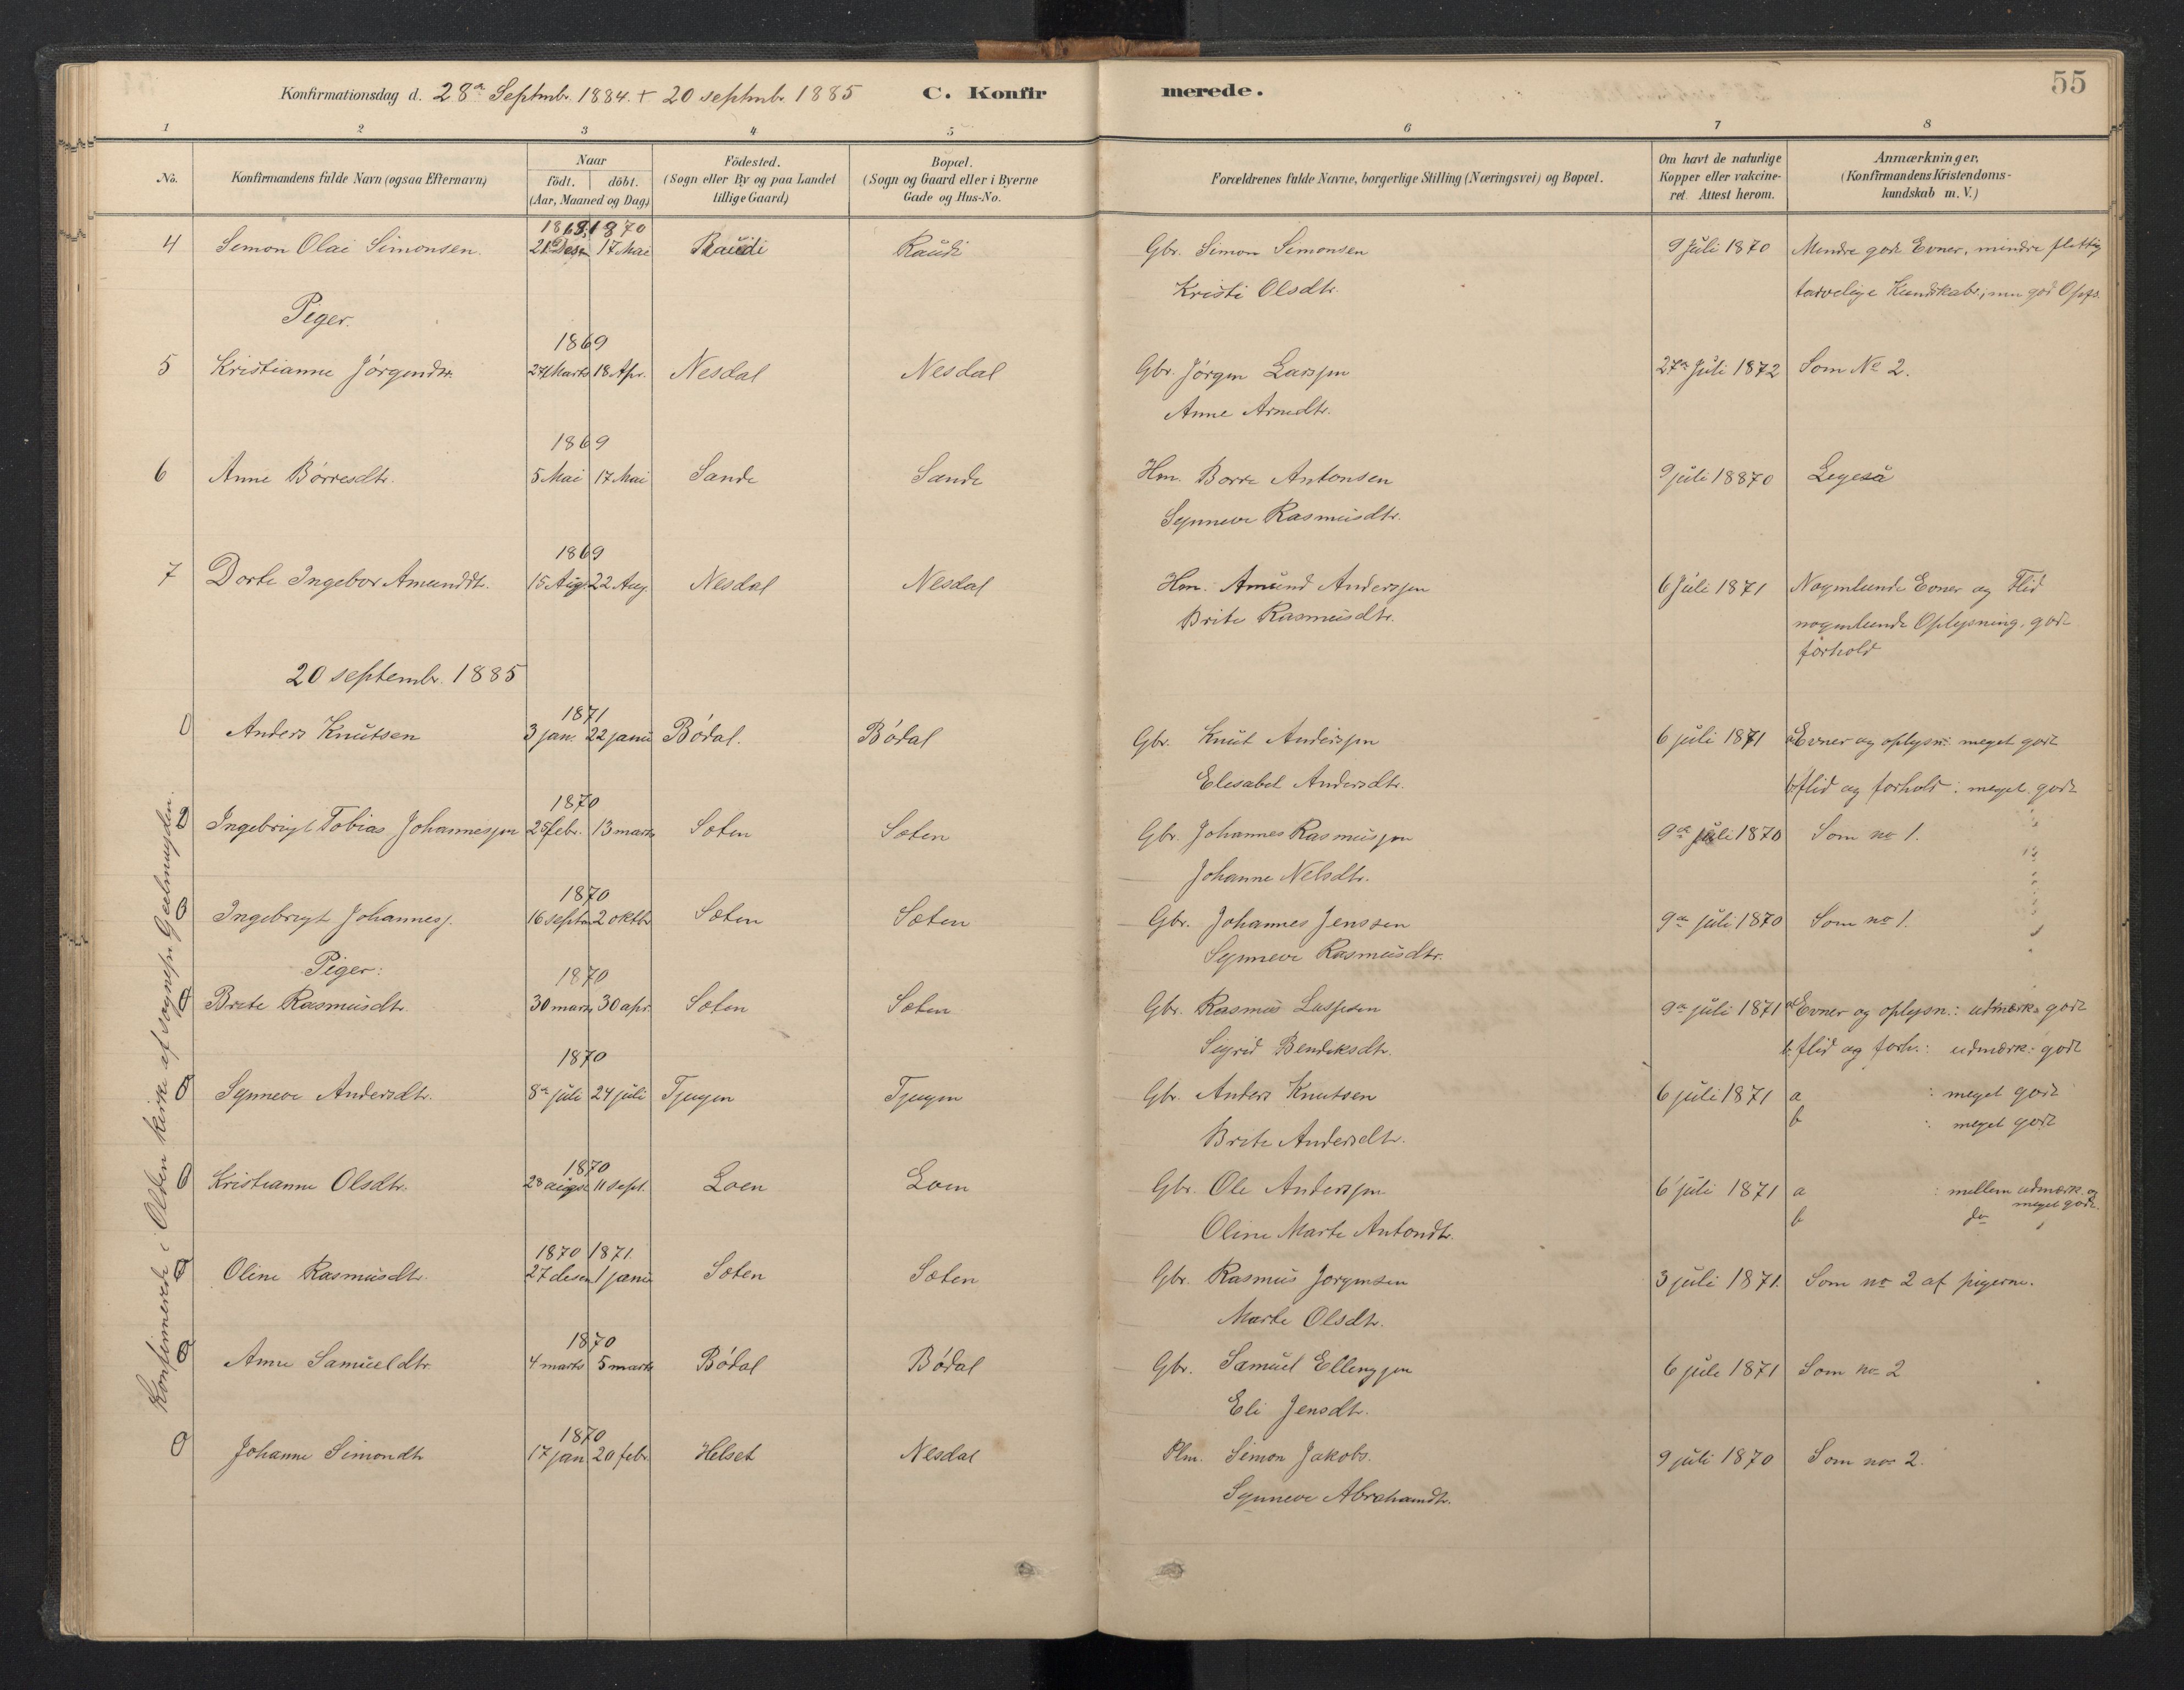 55
Konfirmationsdag d. 28de Septmbr. 1884. + 20 septmbr. 1885 C. Konfirmerede.
1 2 3 4 5 6 7 8
No. Konfirmandens fulde Navn (ogsaa Efternavn) Naar födt. döbt. (Aar, Maaned og Dag) Födested. (Sogn eller By og paa Landet tillige Gaard) Bopæl. (Sogn og Gaard eller i Byerne Gade og Hus-No. Forældrenes fulde Navne, borgerlige Stilling (Næringsvei) og Bopæl. Om havt de naturlige Kopper eller vakcineret. Attest herom. Anmærkninger, (Konfirmandens Kristendomskundskab m. V.)
1870
4 Simon Olai Simonsen. 21 Desr 17 Mai Raudi Raudi Gbr. Simon Simonsen 9 Juli 1870 Mindre gode Evner, mindre flittig
Kristi Olsdtr. tarvelige Kundskabr, men god Opfs.
Piger.
1869
5 Kristianne Jørgendtr. 27 Marts 18 Apr. Nesdal Nesdal Gbr. Jørgen Larssen 27de Juli 1872 Som No 2.
Anne Arnedtr.
1869
6 Anne Børresdtr. 5 Mai 17 Mai Sande Sande Hm. Borre Antonsen 9 juli 18870 Legeså
Synneve Rasmusdtr.
1869
7 Dorte Ingebor Amunddt. 15 Aug. 22 Aug. Nesdal Nesdal Hm. Amund Anderssen 6 Juli 1871 Nogenlunde Evner og Flid
Brite Rasmusdtr. nogenlunde Oplysning, god
forhold
20 septembr. 1885
1871
Anders Knutsen 3 jan. 22 janu Bödal. Bödal Gbr. Knut Anderssen 6 juli 1871 a Evner og oplysn: meget gode
Elisabet Andersdtr. b flid og forhold: meget gode
1870
Ingebrigt Tobias Johannessen 25 febr. 13 marts Sæten Sæten Gbr. Johannes Rasmussen 9de juli 1870 Som no 1.
Johanne Nelsdtr.
1870
Ingebrigt Johannesj. 16 septm 2 oktbr Sæten Sæten Gbr. Johannes Jenssen 9de juli 1870 Som no 1.
Synneve Rasmusdtr.
Piger:
1870
Brite Rasmusdtr. 30 mars 30 apr. Sæten Sæten Gbr. Rasmus Lassesen 9de juli 1871 a Evner og oplysn.: udmærk. gode
Sigrid Bendiksdtr. b. flid og forh.: udmærk. gode
1870
Synneve Andersdtr. 8de juli 24 juli Tjugen Tjugen Gbr. Anders Knutsen 6 juli 1871 a : meget gode
Brite Andersdtr. b : meget gode
1870
Kristianne Olsdtr. 28 august 11 sept. Loen Loen Gbr. Ole Anderssen 6 juli 1871 a : mellem udmærk. og meget gode.
Oline Marte Antondtr. b do
1870 1871.
Oline Rasmusdtr. 27 desen 1 janu Sæten Sæten Gbr. Rasmus Jorgensen 3 juli 1871. Som no 2 af pigerne.
Marte Olsdtr.
1870
Anne Samueldtr. 4 marts 5 marts Bödal Bödal Gbr. Samuel Ellingsen 6 juli 1871 Som no 2
Eli Jensdtr.
1870
Johanne Simondtr 17 jan 20 febr. Helset Nesdal Plm. Simon Jakobs. 9 juli 1870 Som no 2.
Synneve Abrahamdtr.
Konfirmerede i Olden kirke af sognepr. Geelmuyden.